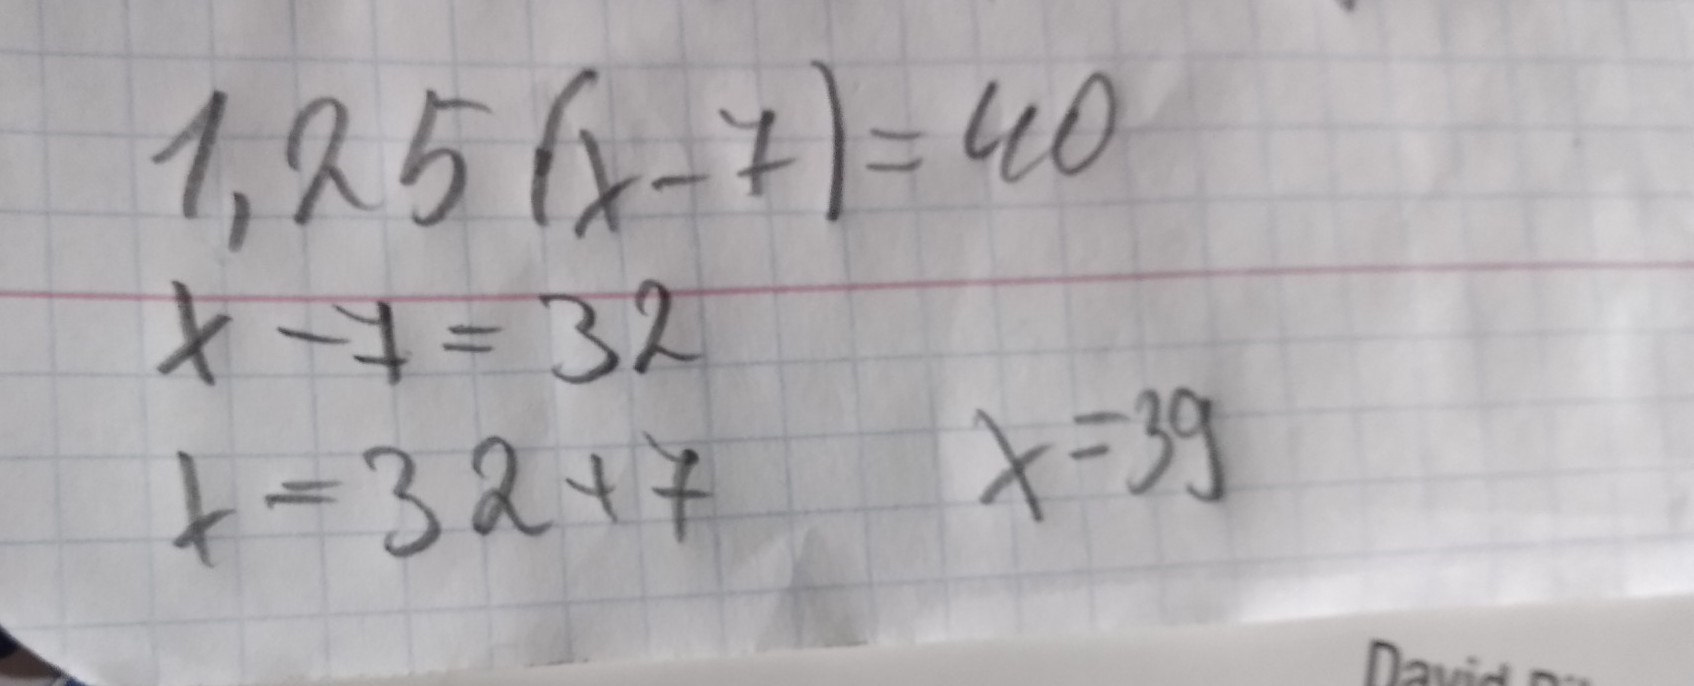 1,25(x-7)=40
x-7=32
x=32+7
x=39
David